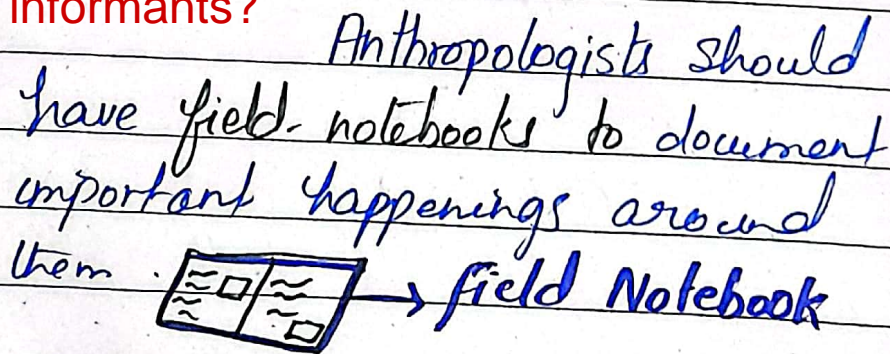 informants?
Anthropologists should
have field-notebooks to document
important happenings around
them.
field Notebook